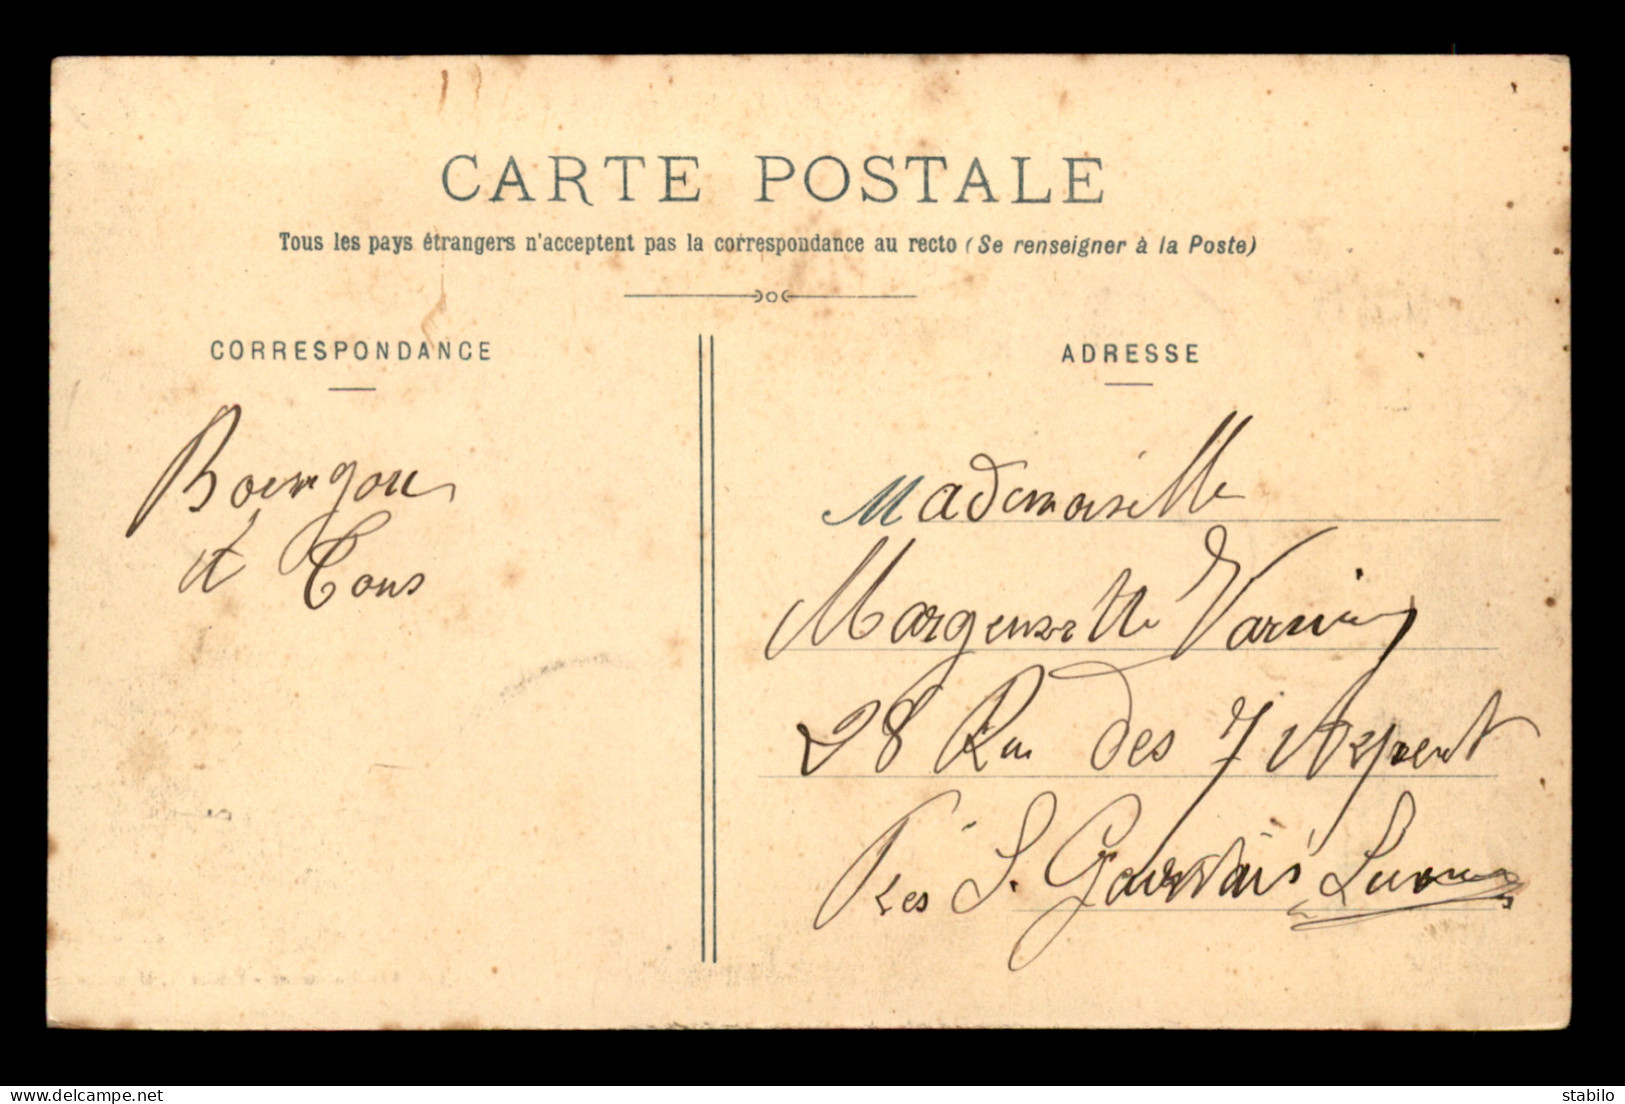 CARTE POSTALE
Tous les pays étrangers n'acceptent pas la correspondance au recto (Se renseigner à la Poste)
CORRESPONDANCE
ADRESSE
à Tous
Mademoiselle
Marguerette
28 Rue des 7
Près S. Gervais
stabilo